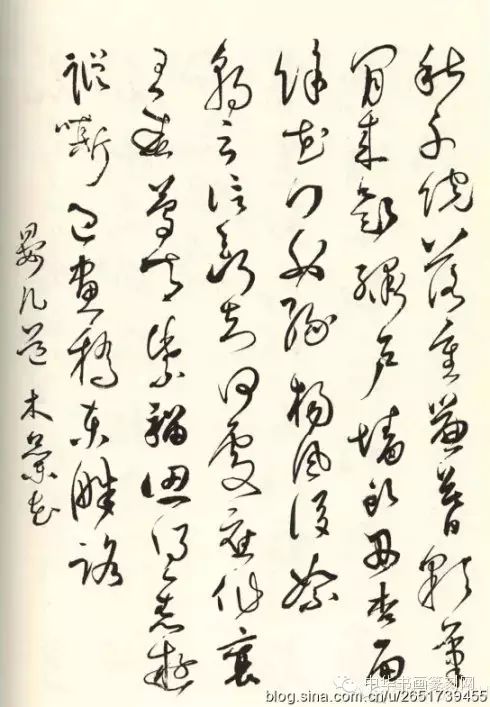 秋千院落重簾暮彩筆
閒來題繡戶墙頭丹杏雨
餘花門外綠楊風後絮
朝云信斷知何處應作襄
王春夢去紫騮認得舊遊
蹤嘶過畫橋東畔路
晏几道 木蘭花
中华书画篆刻网
blog.sina.com.cn/u/2651739455